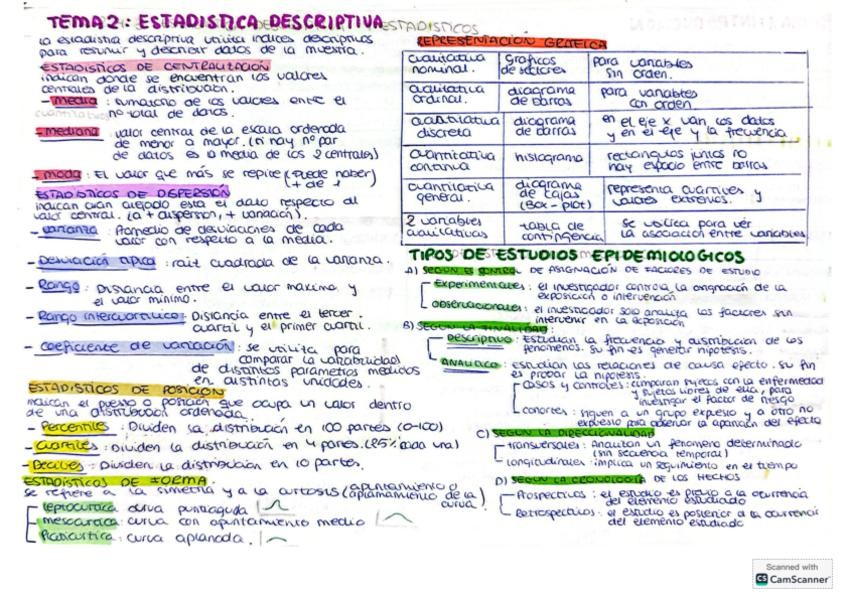 TEMA 2: ESTADISTICA DESCRIPTIVA
la estadistia descriptiva utiliza indices descriptivos
para resumir y describir datos de la muestra.
ESTADISTICOS DE CENTRALIZACIÓN
indican donde se encuentran los valores
centrales de la distribución.
- media : sumatorio de los valores entre el
nº total de datos.
- mediana : valor central de la escala ordenada
de menor a mayor. (si hay nº par
de datos es la media de los 2 centrales)
- moda : El valor que más se repite (puede haber
+ de 1)
ESTADISTICOS DE DISPERSIÓN
indican cuan alejado está el dato respecto al
valor central. (a + dispersion, + variación).
- varianza : Promedio de desviaciones de cada
valor con respecto a la media.
- Desviación típica : raíz cuadrada de la varianza.
- Rango : Distancia entre el valor maximo y
el valor mínimo.
- Rango intercuartilico : Distancia entre el tercer
cuartil y el primer cuartil.
- coeficiente de variación : se utiliza para
comparar la variabilidad
de distintos parámetros medidos
en distintas unidades.
ESTADISTICOS DE POSICIÓN
indican el puesto o posición que ocupa un valor dentro
de una distribución ordenada.
- Percentiles : Dividen la distribución en 100 partes (0-100)
- Cuartiles : Dividen la distribución en 4 partes. (25% cada una)
- Deciles : Dividen la distribución en 10 partes.
ESTADISTICOS DE FORMA.
se refiere a la simetría y a la curtosis (apuntamiento o
aplanamiento de la
curva)
leptocurtica curva puntiaguda
mesocurtica : curva con apuntamiento medio
Platicurtica : curva aplanada.
REPRESENTACION GRAFICA
cualitativa nominal. Graficos de sectores para variables sin orden.
cualitativa ordinal. diagrama de barras para variables con orden.
cuantitativa discreta diagrama de barras en el eje x van los datos y en el eje y la frecuencia
cuantitativa continua histograma rectangulos juntos no hay espacio entre barras
cuantitativa general. diagrama de cajas (Box-plot) representa cuartiles y valores extremos.
2 variables cualitativas tabla de contingencia se utiliza para ver la asociación entre variables
TIPOS DE ESTUDIOS EPIDEMIOLOGICOS
A) SEGUN EL CONTROL DE ASIGNACIÓN DE FACTORES DE ESTUDIO
Experimentales : el investigador controla la asignación de la
exposición o intervención
observacionales : el investigador solo analiza los factores sin
intervenir en la exposición
B) SEGUN LA FINALIDAD :
Descriptivo : Estudian la frecuencia y distribucion de los
fenómenos. Su fin es generar hipotesis.
ANALITICO : estudian las relaciones de causa efecto. Su fin
es probar la hipotesis.
casos y controles : comparan sujetos con la enfermedad
y sujetos libres de ella, para
investigar el factor de riesgo
cohortes : siguen a un grupo expuesto y a otro no
expuesto para observar la aparición del efecto
C) SEGÚN LA DIRECCIONALIDAD
transversales : Analizan un fenomeno determinado
(sin secuencia temporal)
longitudinales : implica un seguimiento en el tiempo
D) SEGUN LA CRONOLOGÍA DE LOS HECHOS
Prospectivos : el estudio es previo a la ocurrencia
del elemento estudiado
Retrospectivos : el estudio es posterior a la ocurrencia
del elemento estudiado
Scanned with
CS CamScanner